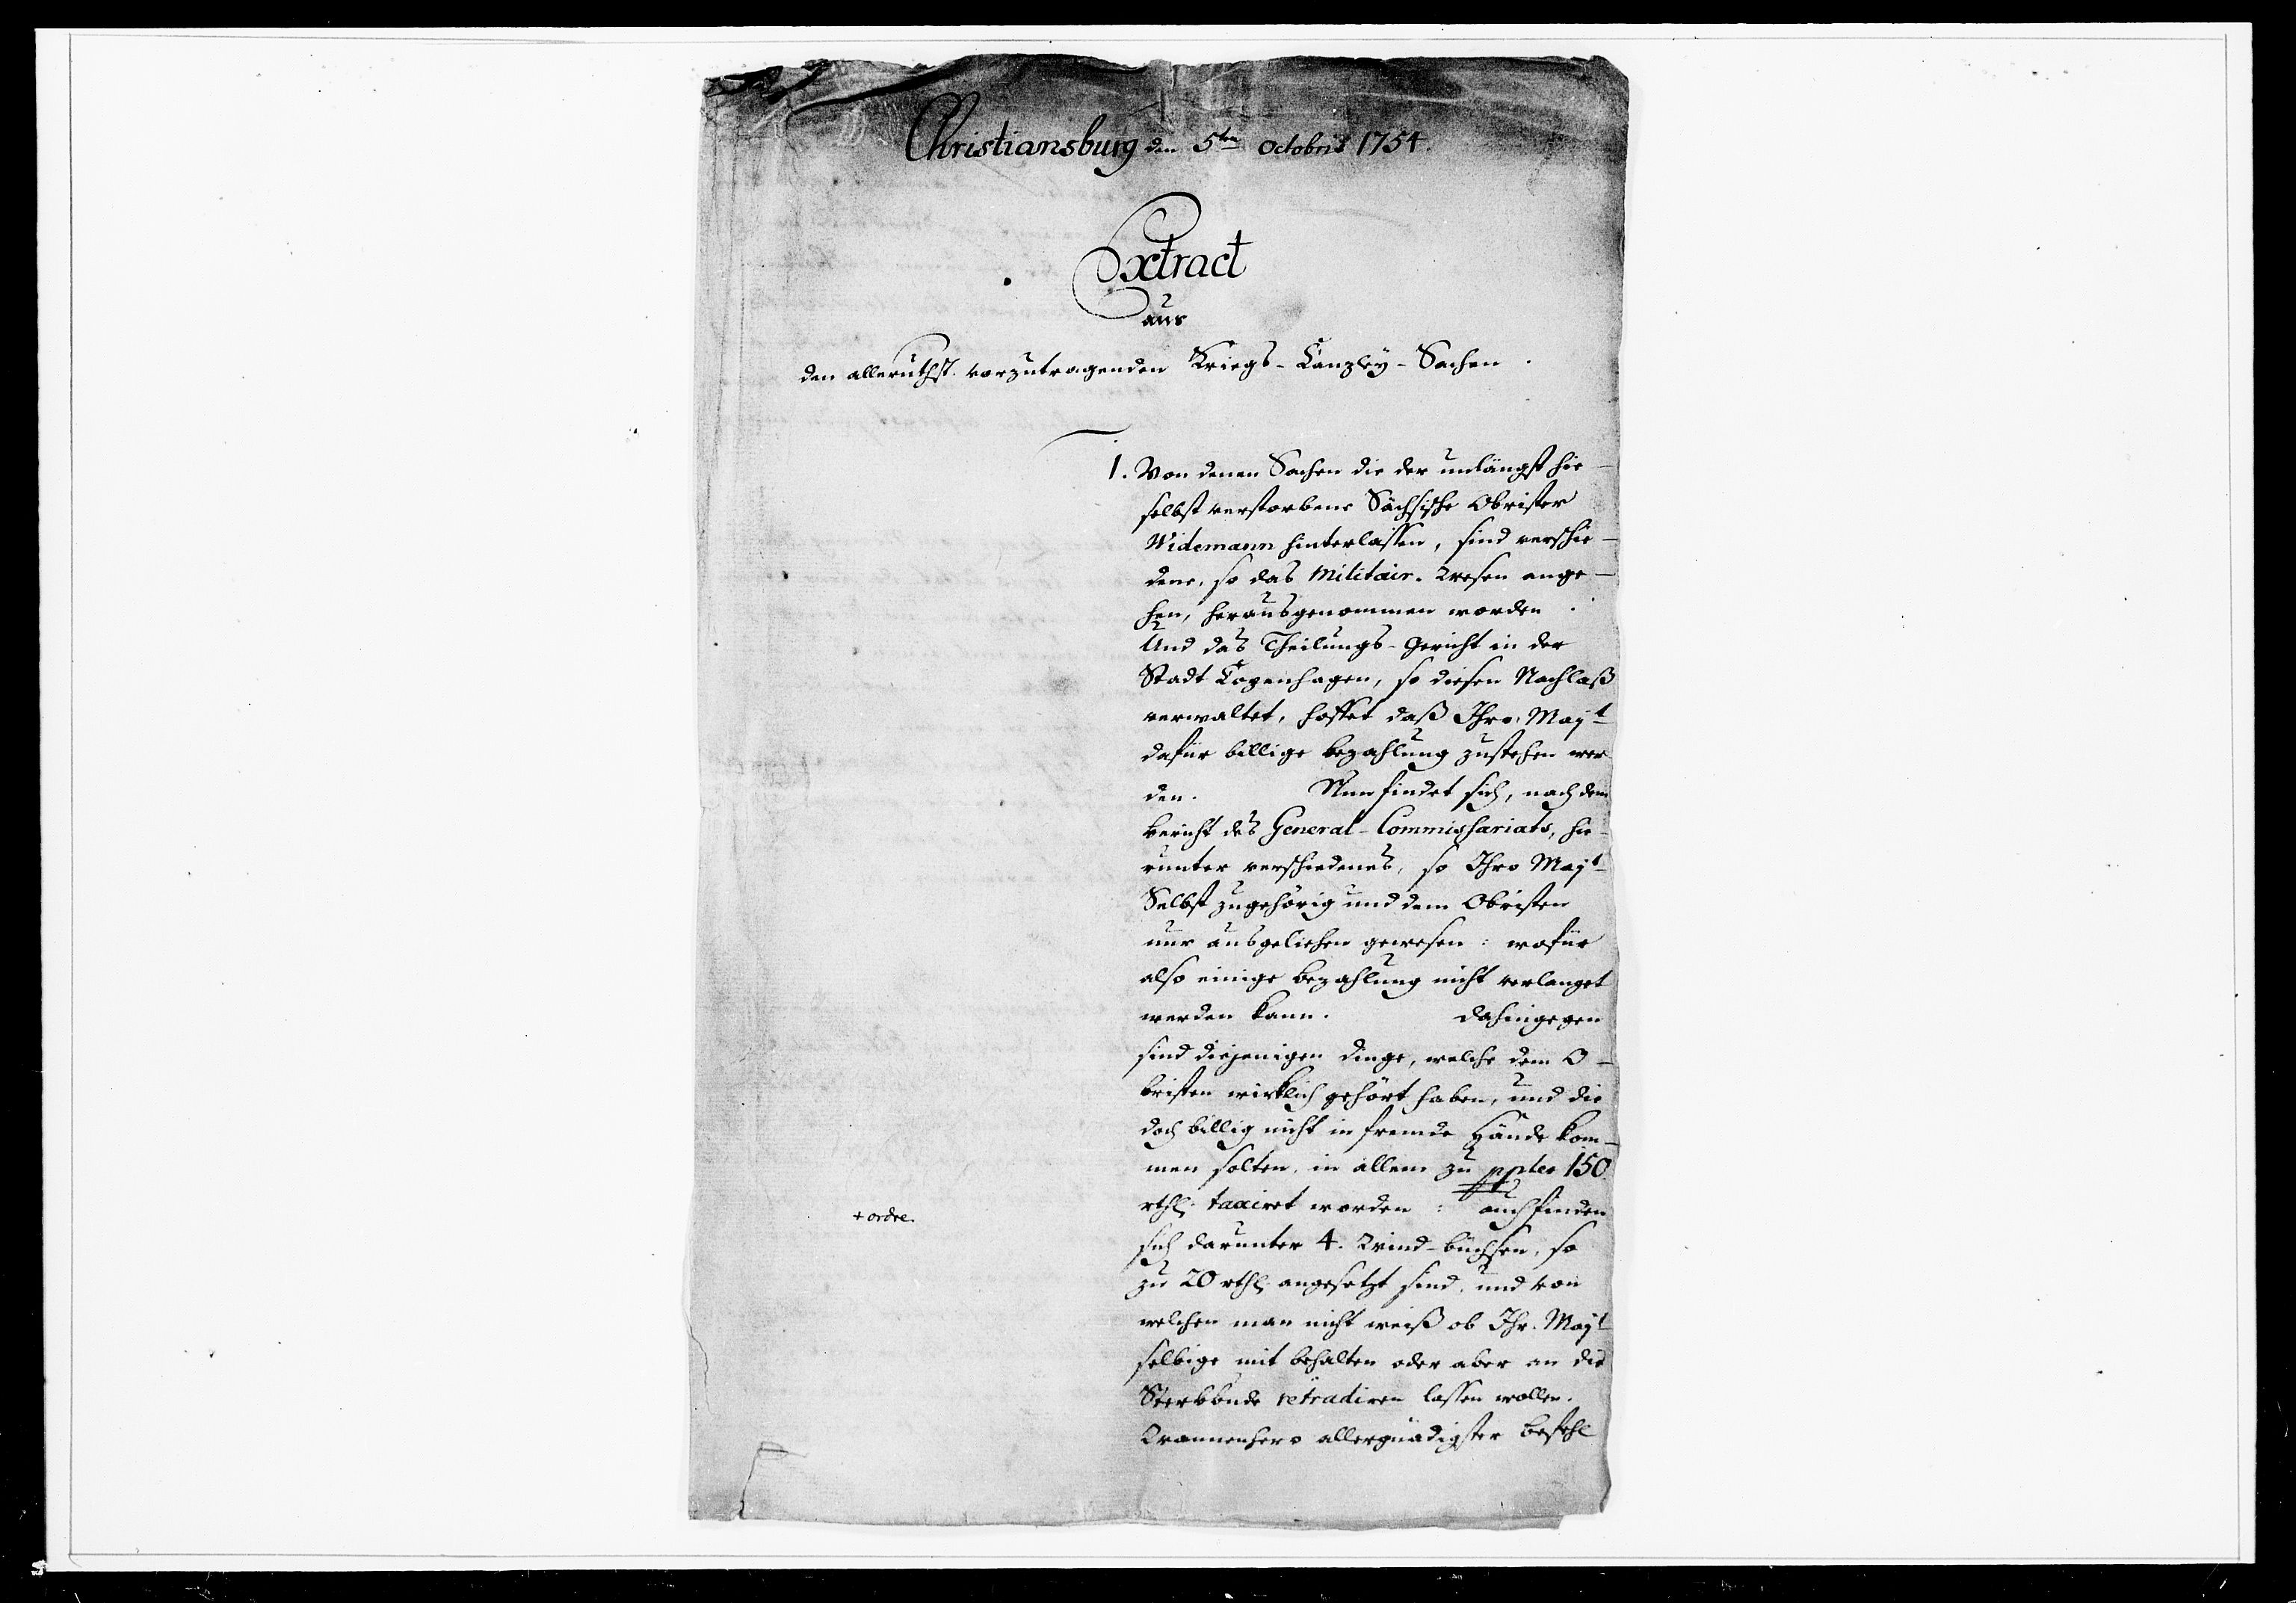 Christiansburg den 5ten Octobris 1754.
Extract
aus
den allerüthst. vorzutragenden Kriegs-Canzley-Sachen.
1. Von denen Sachen die der unlängst hie-
selbst verstorbene Sächsische Obrister
Widemann hinterlassen, sind verschie-
dene, so das Militair-Wesen ange-
hen, herausgenommen worden.
Und das Theilungs-Gericht in der
Stadt Copenhagen, so diesen Nachlaß
verwaltet, hoffet daß Ihro Mayt
dafür billige bezahlung zustehen wer
den. Nun findet sich, nach dem
bericht des General-Commissariats, hie-
runter verschiedenes, so Ihro Mayt
Selbst zugehörig und dem Obristen
nur ausgeliehen gewesen: wofür
also einige bezahlung nicht verlanget
werden kann. dahingegen
sind diejenigen dinge, welche dem O-
bristen wirklich gehört haben, und die
doch billig nicht in fremde Hände kom-
men solten, in allem zu ppter 150
rthl. taxiret worden: auch finden
+ ordre.
sich darunter 4. Wind-büchsen, so
zu 20 rthl. angesetzt sind, und von
welchen man nicht weiß ob Ihr. Mayt
selbige mit behalten oder aber an die
Sterbbude retradiren lassen wollen.
Wannenhero allergnädigster befehl